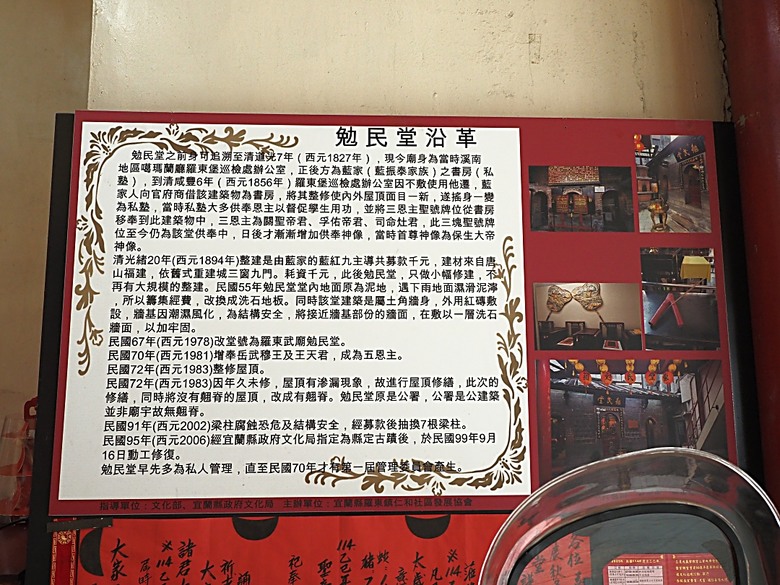 勉民堂沿革
勉民堂之前身可追溯至清道光7年（西元1827年），現今廟身為當時溪南
地區噶瑪蘭廳羅東堡巡檢處辦公室，正後方為藍家（藍振泰家族）之書房（私
塾），到清咸豐6年（西元1856年）羅東堡巡檢處辦公室因不敷使用他遷，藍
家人向官府商借該建築物為書房，將其整修使內外屋頂面目一新，遂搖身一變
為私塾，當時私塾大多供奉恩主以督促學生用功，並將三恩主聖號牌位從書房
移奉到此建築物中，三恩主為關聖帝君、孚佑帝君、司命灶君，此三塊聖號牌
位至今仍為該堂供奉中，日後才漸漸增加供奉神像，當時首尊神像為保生大帝
神像。
清光緒20年(西元1894年)整建是由藍家的藍紅九主導共募款千元，建材來自唐
山福建，依舊式重建城三窗九門。耗資千元，此後勉民堂，只做小幅修建，不
再有大規模的整建。民國55年勉民堂堂內地面原為泥地，遇下雨地面濕滑泥濘
，所以籌集經費，改換成洗石地板。同時該堂建築是屬土角牆身，外用紅磚敷
設，牆基因潮濕風化，為結構安全，將接近牆基部份的牆面，在敷以一層洗石
牆面，以加牢固。
民國67年(西元1978)改堂號為羅東武廟勉民堂。
民國70年(西元1981)增奉岳武穆王及王天君，成為五恩主。
民國72年(西元1983)整修屋頂。
民國72年(西元1983)因年久未修，屋頂有滲漏現象，故進行屋頂修繕，此次的
修繕，同時將沒有翹脊的屋頂，改成有翹脊。勉民堂原是公署，公署是公建築
並非廟宇故無翹脊。
民國91年(西元2002)梁柱腐蝕恐危及結構安全，經募款後抽換7根梁柱。
民國95年(西元2006)經宜蘭縣政府文化局指定為縣定古蹟後，於民國99年9月
16日動工修復。
勉民堂早先多為私人管理，直至民國70年才有第一屆管理委員會產生。
指導單位：文化部、宜蘭縣政府文化局　主辦單位：宜蘭縣羅東鎮仁和社區發展協會